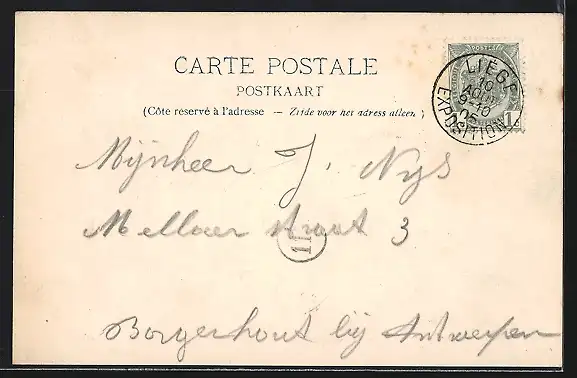 CARTE POSTALE
POSTKAART
(Côte réservé à l'adresse — Zijde voor het adress alleen)
POSTES
1
LIÉGE
19
AOUT
9-10
05
EXPOSITION
Mijnheer J. Nys
straat 3
11
Borgerhout bij Antwerpen